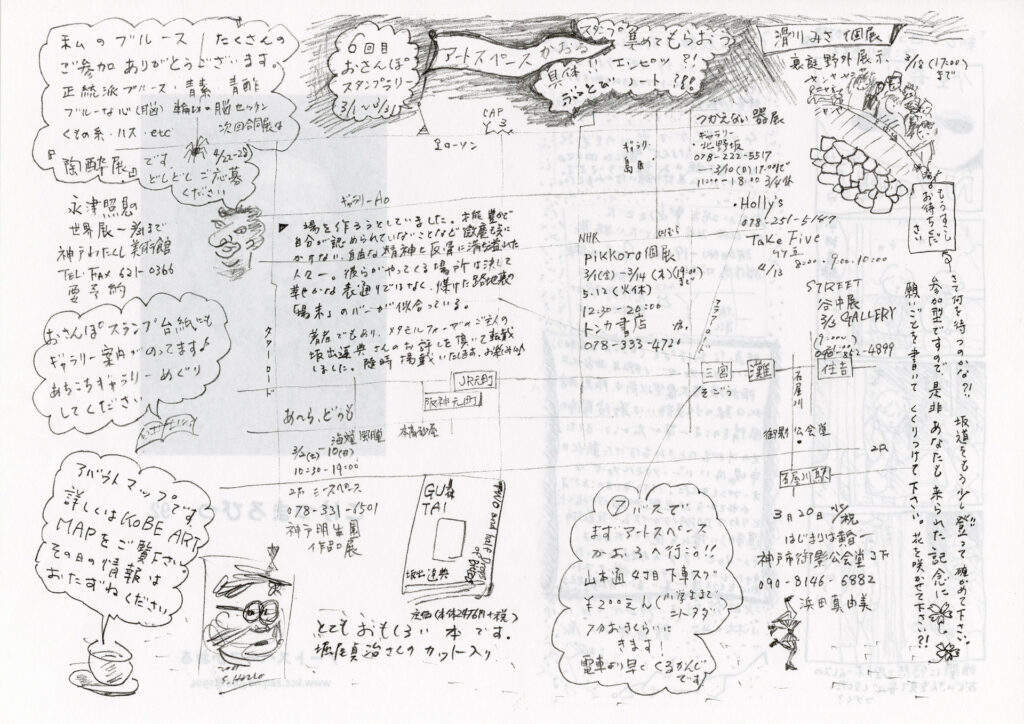 私のブルース たくさんの
ご参加ありがとうございます。
正統派ブルース・青素・青酢
ブルーな心(脳) 輪切り脳セッケン
くもの糸・ハス・etc
次回合同展は
『陶酔展』です 4/22-28
どしどしご応募
ください
永津照見の
世界展
神戸わたくし美術館
TEL・FAX 621-0366
要予約
おさんぽスタンプ台紙にも
ギャラリー案内がのってます♪
あちこちギャラリーめぐり
してください
アバウトマップです
詳しくはKOBE ART
MAPをご覧下さい
その日の情報は
おたずねください
6回目
おさんぽ
スタンプラリー
3/1〜3/31
アートスペースかおる
スタンプ集めてもらおう
具体 エンピツ?!
CAP
Y3
ローソン
ギャラリーAo
場を作ろうとしていました。
自分が認められていないことなど歯磨き球に
かけない、自由な精神と反骨に満ち溢れた
人々―。彼らがやってくる場所は決して
華やかな表通りではなく、煤けた路地裏の
「場末」のバーが似合っている。
著者でもあり、メタモルフォーゼのご主人の
坂出達典さんのお許しを頂いて転載
しました。随時掲載いたします。お楽しみ♪
タワーロード
JR元町
阪神元町
あ〜ら、どうも
3/2(土) 10(日)
10:30-19:00
2F ミニスペース
078-331-6501
神戸明生園
作品展
本高砂屋
GU
TAI
坂出達典
TWO and half Drops
of BITTERS
定価(本体2476円+税)
とてもおもしろい本です。
堀尾貞治さんのカット入り
滑川みさ個展
裏庭野外展示
3/18(17:00)
まで
つかえない器展
ギャラリー
北野坂
078-222-5517
―3/10(日)17:00まで
11:00-18:00 3/4休
ギャラリー
島田
・Holly's
078-251-5147
Take Five
4/13 8:00・9:00・10:00
NHK
pikkoro個展
3/1(金)-3/14(木)(19:00)まで
5.12(火休)
12:30-20:00
トンカ書店
078-333-4720
フラワーロード
STREET
GALLERY
谷中展
三宮
灘
住吉
そごう
石屋川
御影公会堂
2R
石屋川駅
⑦バスで
まずアートスペース
かおるへ行こう!!
山本通4丁目下車スグ
¥200えん
7分おきくらいに
きます!
電車より早くくるかんじ
です
3月20日 祝
はじまりは贅一
神戸市御影公会堂
090-8146-6882
浜田真由美
もうすこし
お待ちくだ
さい
さて何を待つのかな?! 坂道をもう少し登って確かめて下さい。
参加型ですので、是非あなたも来られた記念に
願いごとを書いてくくりつけて下さい。花を咲かせて下さい?!